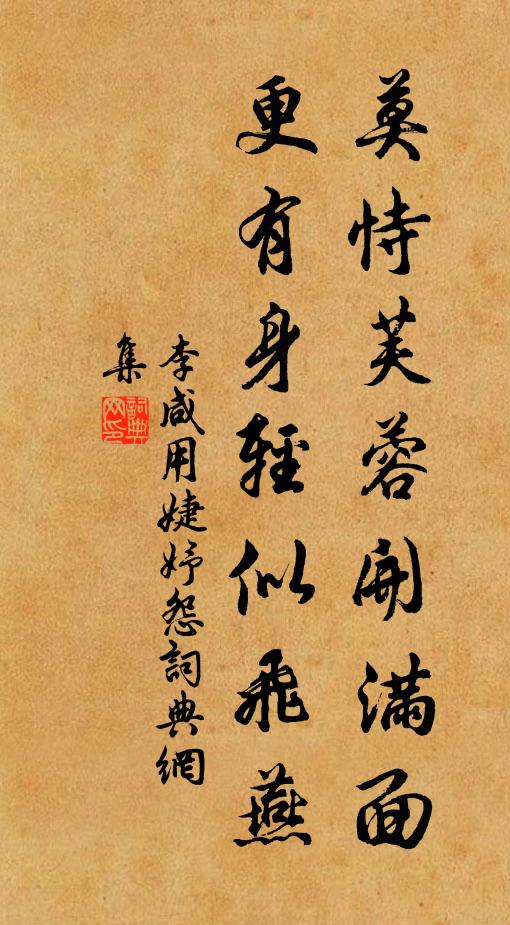 莫恃芙蓉開滿面
更有身輕似飛燕
李咸用婕妤怨詞典網
集
詞典网印